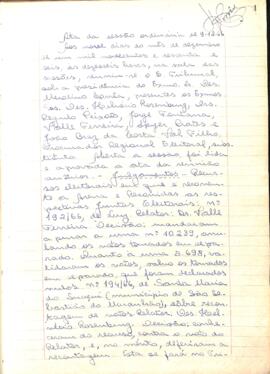 1
Ata da sessão ordinária de 9-12-66
Aos nove dias do mês de dezembro
de um mil novecentos e sessenta e
seis, às dezesseis horas, na sala das
sessões, reuniu-se o E. Tribunal,
sob a presidência do Exmo. Sr. Des.
presentes os Exmos
Srs. Des. Rosenburg, Drs.
Peixoto, Jorge Fontana,
Valle Ferreira,
João Braz da Costa Val Filho,
Procurador Regional Eleitoral, subs-
tituto. Aberta a sessão foi lida
e aprovada a ata da reunião
anterior. - Julgamentos - Recur-
sos eleitorais em que é recorren-
te a Arena e Recorridas as res-
pectivas Juntas Eleitorais: nº
192/66, de Luz. Relator: Dr. Valle
Ferreira. Decisão: mandaram
apurar a urna nº 10.239,
os votos tomados em sepa-
rado. Quanto à urna 2.698, va-
lidaram os votos, salvo os tomados
em separado, que foram declarados
nulos. Nº 194/66, de Santa Maria
do Suaçuí (município de São Se-
bastião do Maranhão), sobre recon-
tagem de votos. Relator: Des.
Rosenburg. Decisão: conhe-
ceram do recurso, contra o voto do
Relator, e, no mérito, deferiram a
recontagem. Esta se fará no Tri-